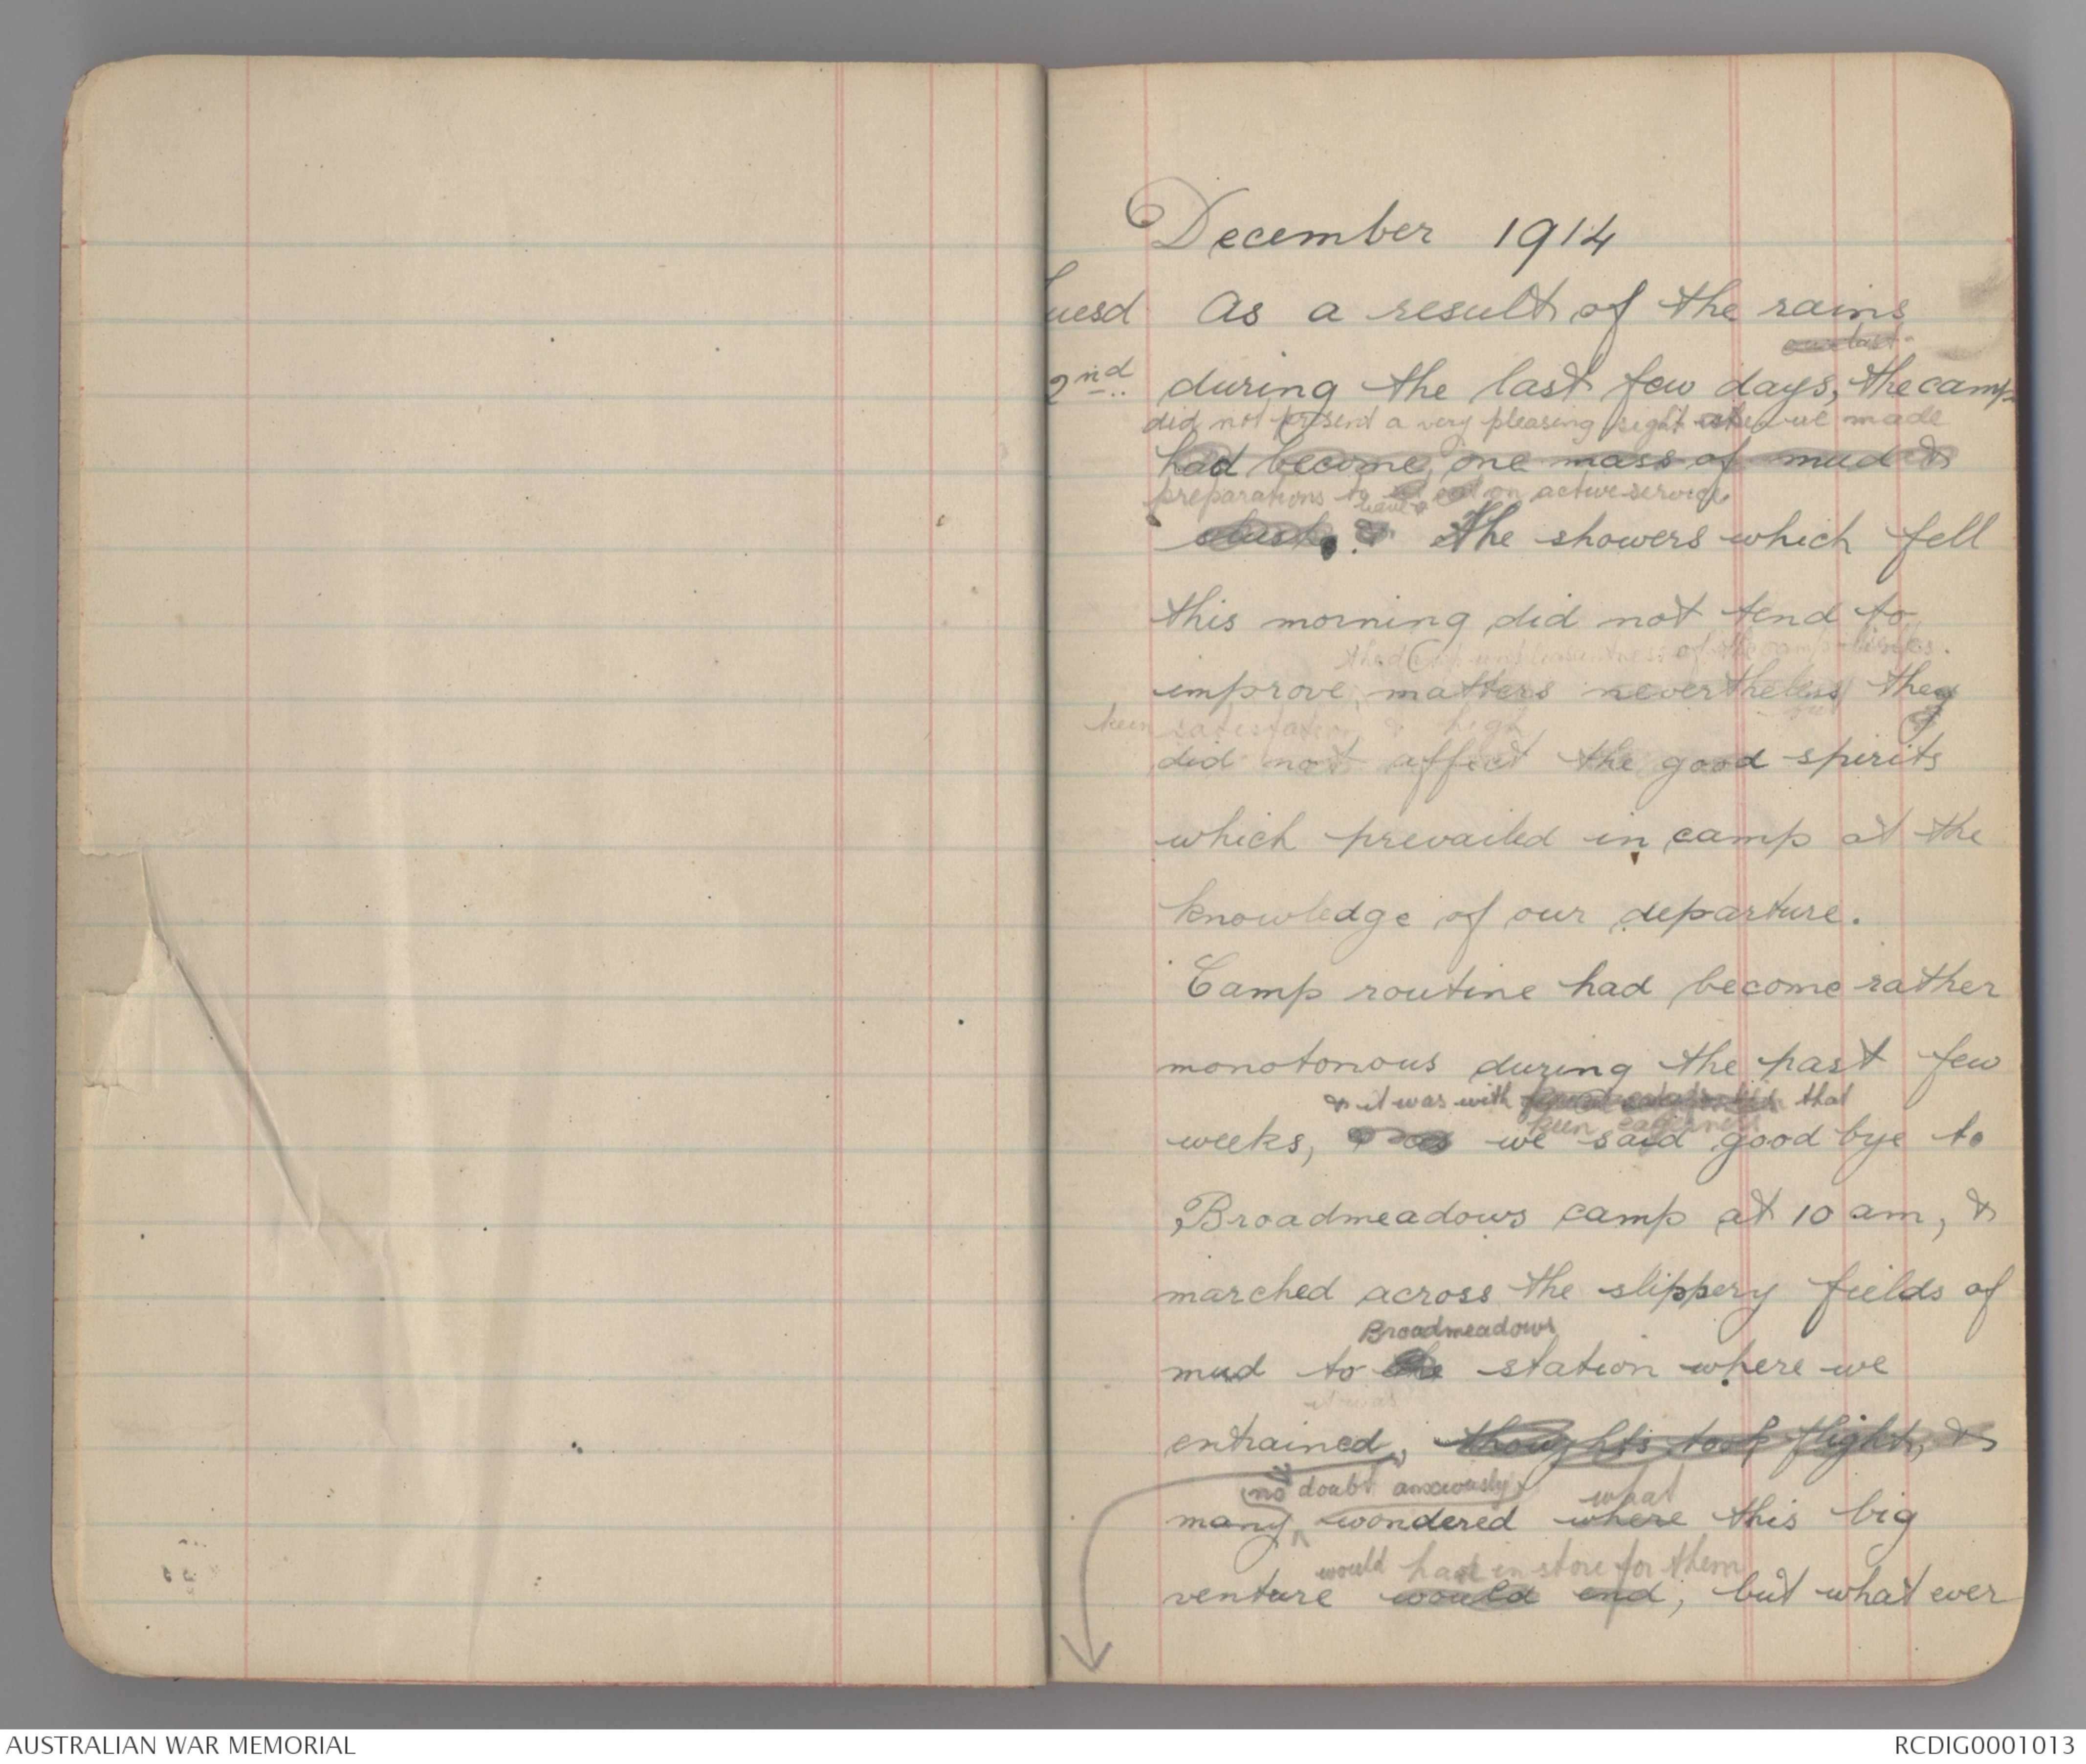 December 1914
uesd As a result of the rains
our last
2nd during the last few days, the camp
did not present a very pleasing sight when we made
had become one mass of mud &
preparations to on active service.
leave
slush. & The showers which fell
this morning did not tend to
the unpleasantness of the camp
improve matters nevertheless they
but
keen satisfaction & high
did not affect the good spirits
which prevailed in camp at the
knowledge of our departure.
Camp routine had become rather
monotonous during the past few
& it was with that
keen eagerness
weeks, & as we said good bye to
Broadmeadows camp at 10 am, &
marched across the slippery fields of
Broadmeadows
mud to the station where we
it was
entrained, thoughts took flight, &
no doubt anxiously
what
many wondered where this big
would have in store for them
venture would end; but what ever
AUSTRALIAN WAR MEMORIAL
RCDIG0001013